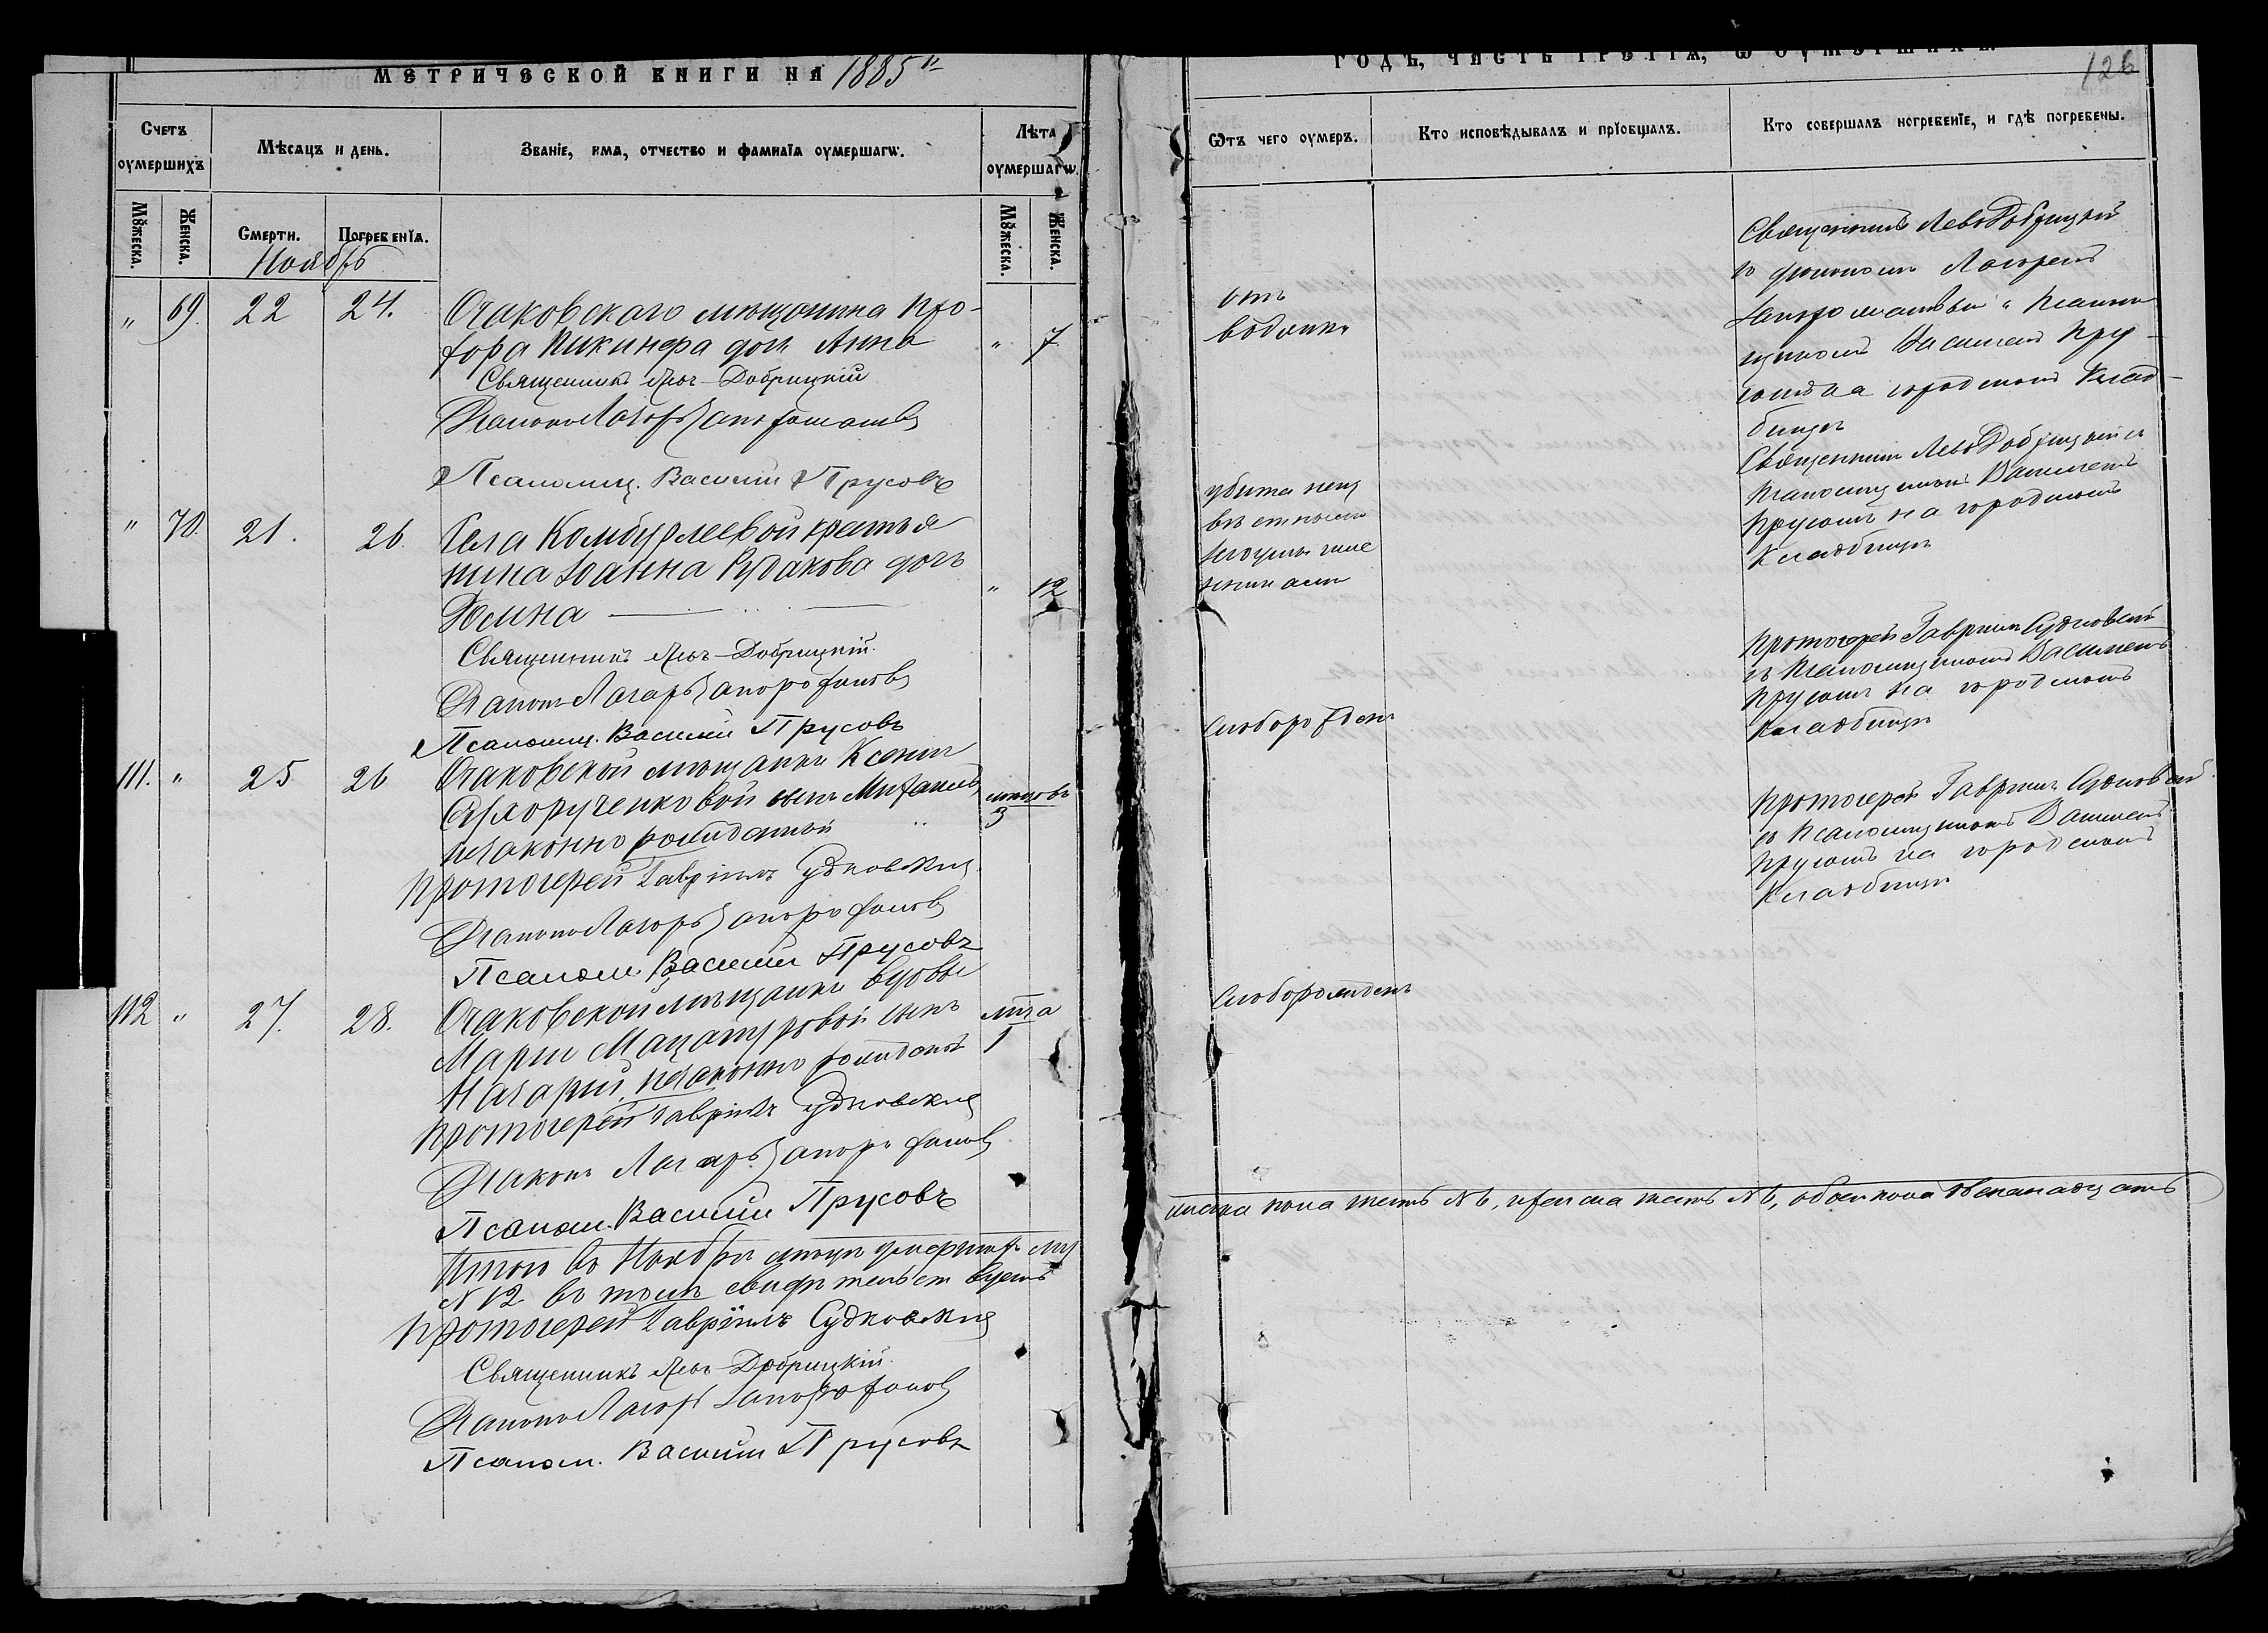 МЕТРИЧЕСКОЙ КНИГИ НА 1885й
ГОДЪ, ЧАСТЬ ТРЕТІѦ, Ѡ ОУМЕРШИХЪ.
126
Счетъ оумершихъ
Мѣсѧцъ и день.
Званіе, имѧ, отчество и фамиліѧ оумершагѡ.
Лѣта оумершагѡ.
Ѿтъ чего оумеръ.
Кто исповѣдывалъ и пріобщалъ.
Кто совершалъ погребеніе, и гдѣ погребены.
Мꙋжеска.
Женска.
Смерти.
Погребеніѧ.
Мꙋжеска.
Женска.
Ноябрь
" 69. 22 24.
Очаковскаго мѣщанина Про-
хора дочь Анна " 7
Священникъ Левъ Добрицкій
Діаконъ Лазарь
Псаломщ. Василій Прусовъ
отъ
водянки
Священникъ Левъ Добрицкій
съ діакономъ Лазаремъ
и Псалом
щикомъ Василіемъ Пру
совымъ на городскомъ Клад-
бищѣ
" 70. 21. 26.
Села Комбурлеевой крестья
нина Іоанна Рудакова дочь
Юлина " 12
Священникъ Левъ Добрицкій.
Діаконъ Лазарь
Псаломщ. Василій Прусовъ
убита
Священникъ Левъ Добрицкій и
Псаломщикомъ Василіемъ
Прусовымъ на городскомъ
Кладбищѣ
111. " 25 26
Очаковской мѣщанки Ксеніи
Сухорученковой сынъ Михаилъ
незаконно рожденный
3
Протоіерей Гавріилъ Судковскій
Діаконъ Лазарь
Псалом. Василій Прусовъ
Слаборожден
Протоіерей Гавріилъ Судковскій
съ Псаломщикомъ Василіемъ
Прусовымъ на городскомъ
Кладбищѣ
112 " 27. 28.
Очаковской мѣщанки вдовы
Маріи сынъ
Назарій, незаконно рожденный
1
Протоіерей Гавріилъ Судковскій
Діаконъ Лазарь
Псалом. Василій Прусовъ
Слаборожденъ
Протоіерей Гавріилъ Судковскій
съ Псаломщикомъ Василіемъ
Прусовымъ на городскомъ
Кладбищѣ
Итого въ Ноябрѣ мѣсяцѣ умершихъ муж
№ 12 въ томъ свидѣтельствуемъ
жеска пола шесть № 6, женска шесть № 6, обоего пола двенанадцать
Протоіерей Гавріилъ Судковскій
Священникъ Левъ Добрицкій.
Діаконъ Лазарь
Псалом. Василій Прусовъ